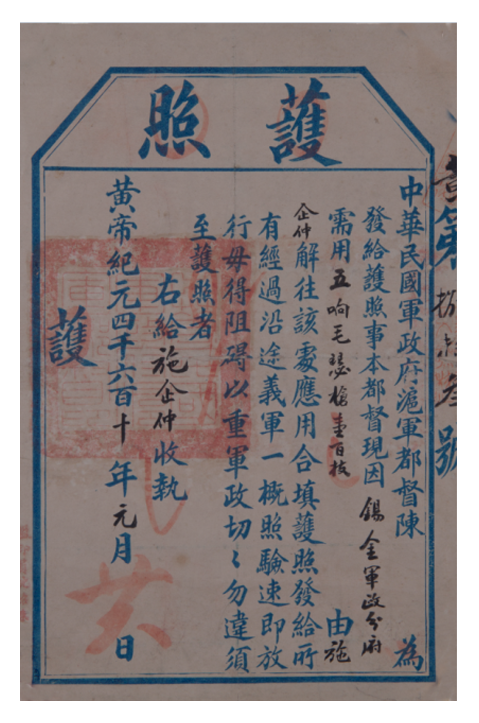 護照
號
中華民國軍政府滬軍都督陳 為
發給護照事本都督現因錫金軍政分府
需用五响毛瑟槍壹百枝 由施
企仲解往該處應用合填護照發給所
有經過沿途義軍一概照驗速即放
行毋得阻碍以重軍政切〻勿違須
至護照者
右給施企仲收執
黃帝紀元四千六百十年元月 日
護